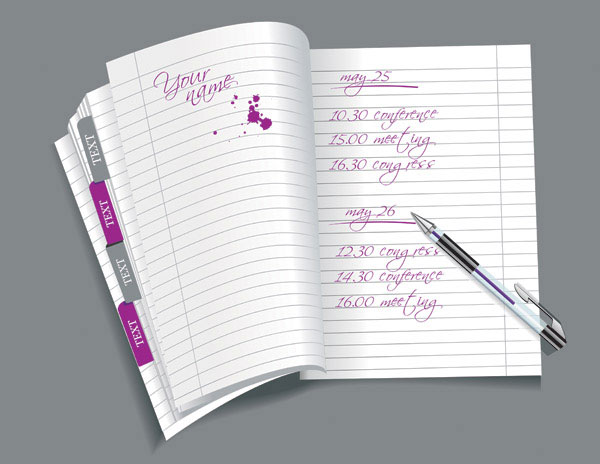 Your
name
TEXT
TEXT
TEXT
TEXT
may 25
10.30 conference
15.00 meeting
16.30 congress
may 26
12.30 congress
14.30 conference
16.00 meeting